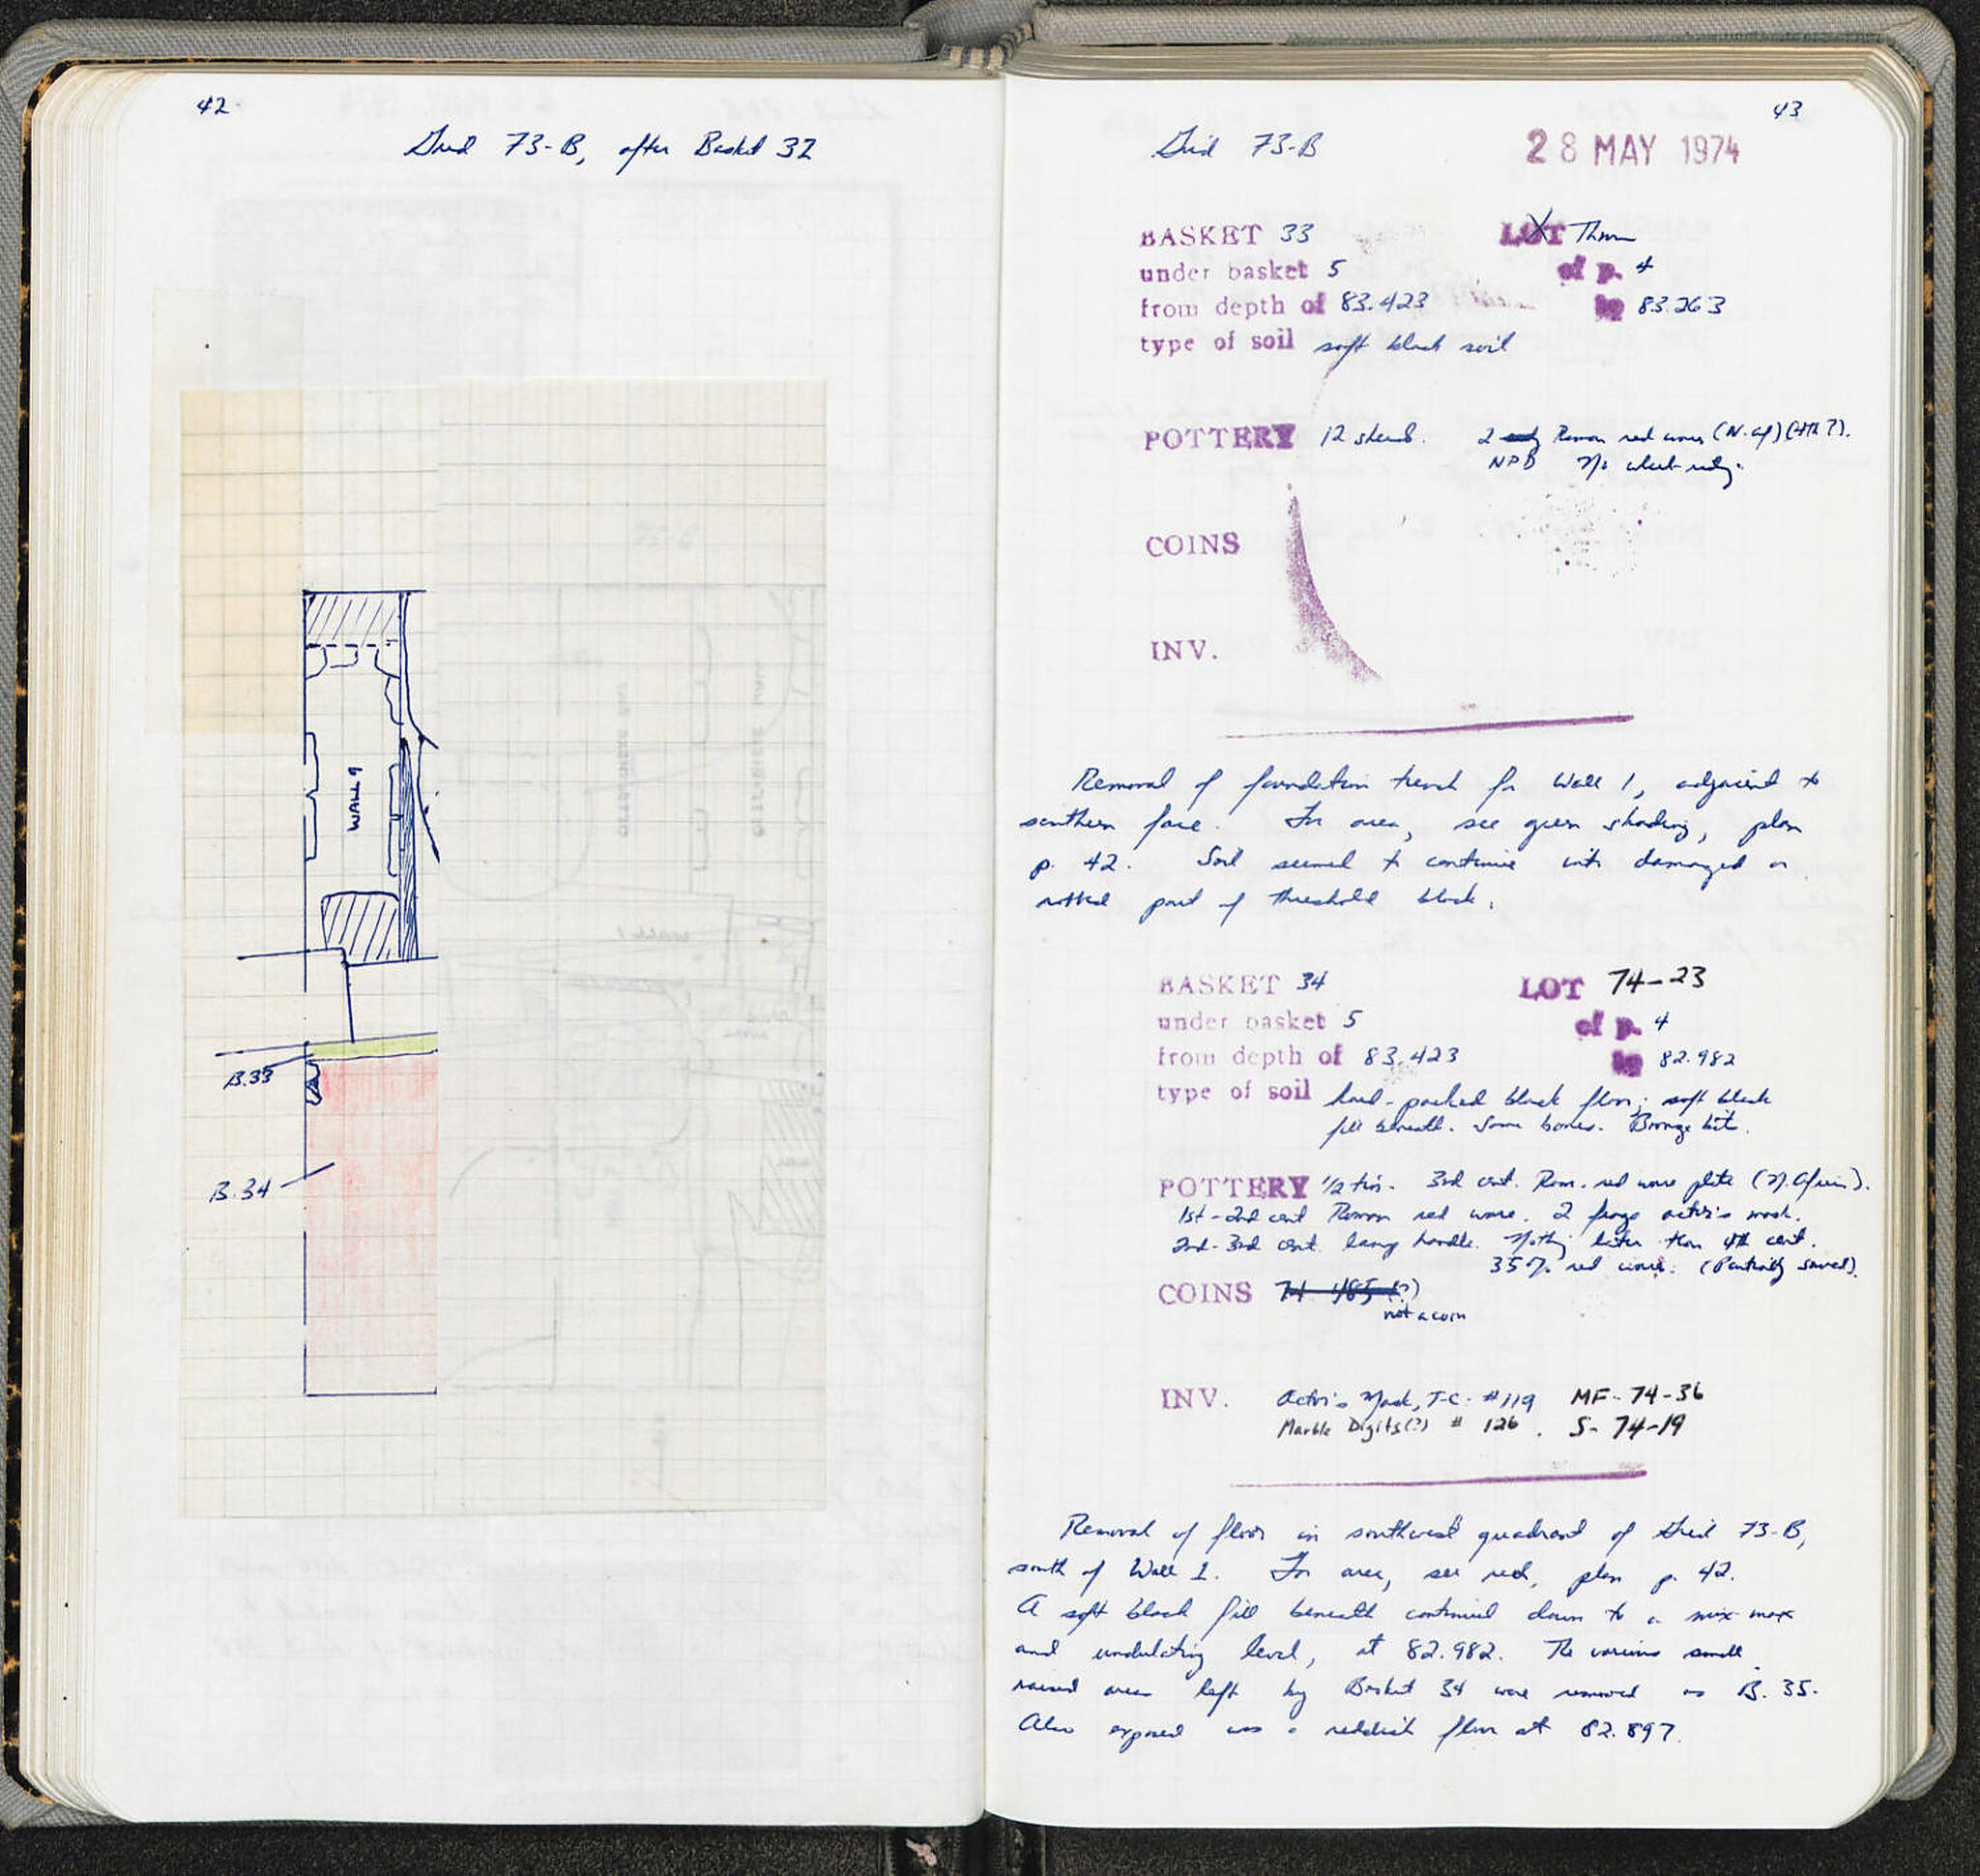 42
Grid 73-B, after Basket 32
WALL 9
B.33
B.34
43
Grid 73-B
28 MAY 1974
BASKET 33 LOT Throw
under basket 5 of p. 4
from depth of 83.423 to 83.263
type of soil soft black soil
POTTERY 12 sherds. 2 Roman red wares (N. Af) (4th ?).
NPD No wheel-ridg.
COINS
INV.
Removal of foundation trench for Wall 1, adjacent to
southern face. For area, see green shading, plan
p. 42. Soil seemed to continue into damaged or
rotted part of threshold block.
BASKET 34 LOT 74-23
under basket 5 of p. 4
from depth of 83.423 to 82.982
type of soil hard-packed black floor; soft black
fill beneath. Some bones. Bronze bit.
POTTERY 1/2 tin. 3rd cent. Rom. red ware plate (N. African).
1st-2nd cent Roman red ware. 2 frags actor's mask.
2nd-3rd cent. lamp handle. Nothing later than 4th cent.
35% red ware. (Partially saved).
COINS 74-485 (?)
not a coin
INV. Actor's Mask, T-C. #119 MF-74-36
Marble Digits(?) # 126. S-74-19
Removal of floor in southwest quadrant of Grid 73-B,
south of Wall 1. For area, see red, plan p. 42.
A soft black fill beneath continued down to a mix max
and undulating level, at 82.982. The various small
raised areas left by Basket 34 were removed as B. 35.
Also exposed was a reddish floor at 82.897.